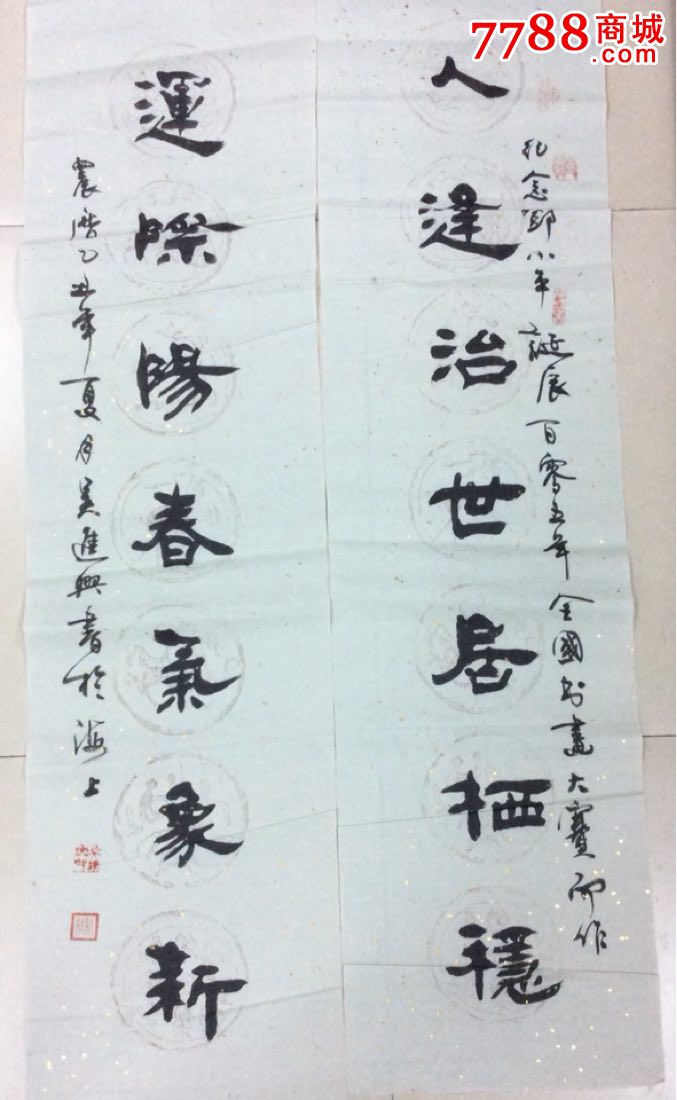 7788商城
.com
纪念邓小平誕辰百零五年全國书畫大賽而作
人逢治世居栖穩
運際陽春氣象新
農曆乙丑年夏月吴進興書於海上